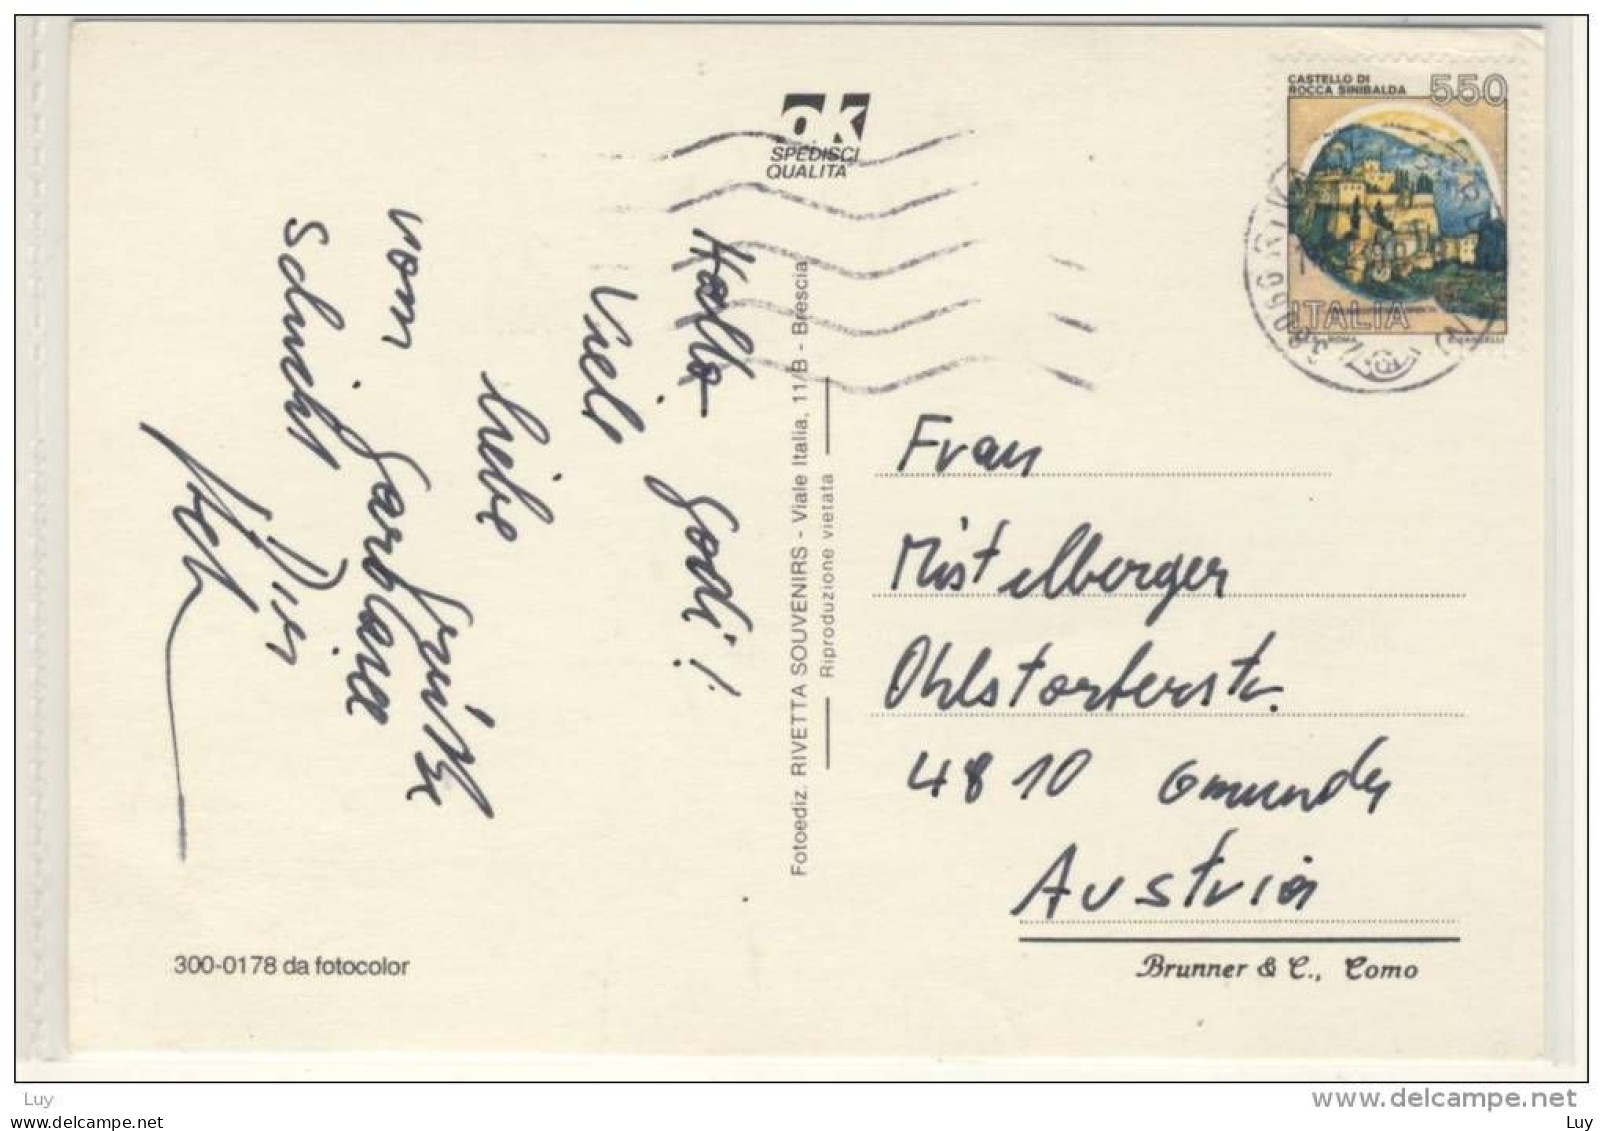 CASTELLO DI
ROCCA SINIBALDA
550
ITALIA
ROMA
ok
SPEDISCI
QUALITA'
Hallo Godi!
Viele
liebe Grüße
vom Gardasee
Schickt Dir
Fotoediz. RIVETTA SOUVENIRS - Viale Italia, 11/B - Brescia
Riproduzione vietata
Frau
Mistelberger
Ohlstorferstr.
4810 Gmunden
Austria
300-0178 da fotocolor
Brunner & C., Como
Luy
www.delcampe.net
Luy
Luy